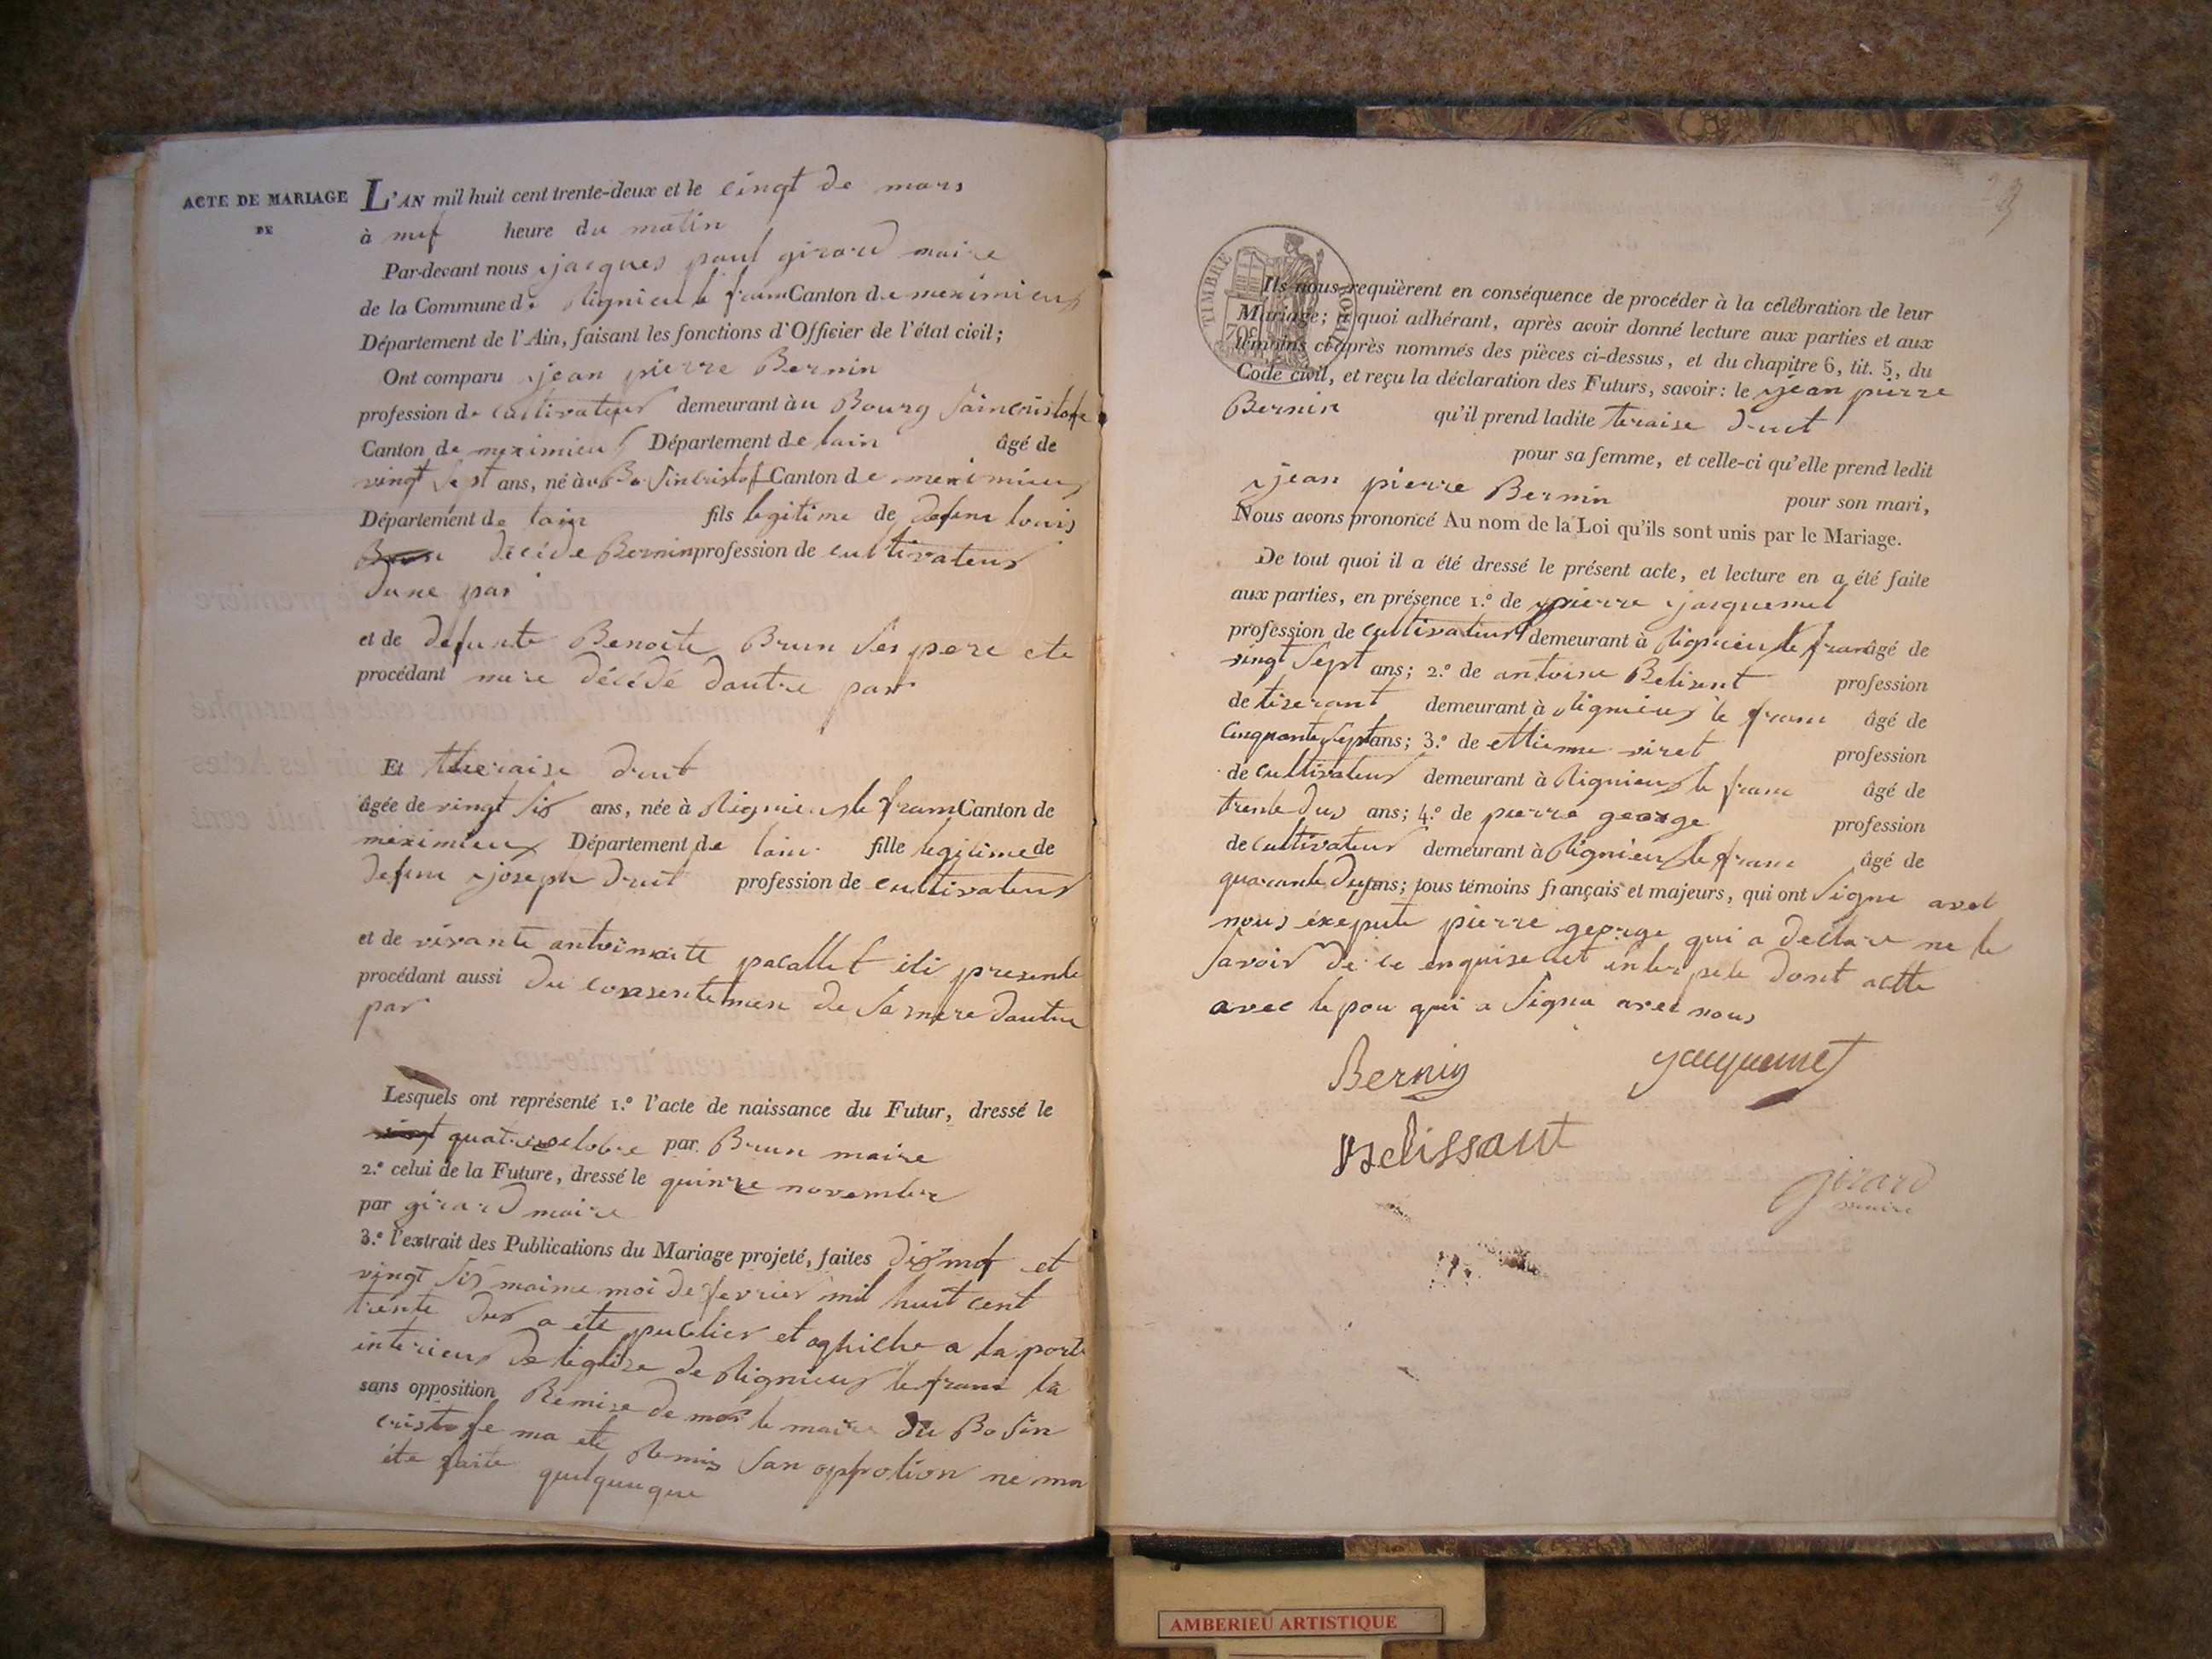 ACTE DE MARIAGE
DE
L'AN mil huit cent trente-deux et le vingt de mars
à nuf heure du matin
Par-devant nous jacques paul girard maire
de la Commune de Rignieu le fran Canton de meximieux
Département de l'Ain, faisant les fonctions d'Officier de l'état civil;
Ont comparu jean pierre Bernin
profession de cultivateur demeurant à u Bourg Saincristofe
Canton de meximieux Département de lain âgé de
vingt sept ans, né à u Bo Sincristof Canton de meximieux
Département de lain fils legitime de defun louis
décéde Bernin profession de cultivateur
dune par
et de defunte Benoite Brun Ses pere ete
procédant mere décédé dautre par
Et theraise druit
âgée de vingt six ans, née à Rignieux le fran Canton de
meximieux Département de lain fille legitime de
defun joseph druit profession de cultivateur
et de vivante antoinaitte pacallet ici presente
procédant aussi du consentemen de Sa mere dautre
par
Lesquels ont représenté 1.º l'acte de naissance du Futur, dressé le
vingt quatre octobre par Brun maire
2.º celui de la Future, dressé le quinze novembre
par girard maire
3.º l'extrait des Publications du Mariage projeté, faites dixnuf et
vingt six maime moi de fevrier mil huit cent
trente dux a été publier et affiche a la porte
interieur de léglise de Rignieux le franc la
sans opposition Remise de mr le maire du Bo Sin
cristofe ma eté Remis San oppotion ne ma
éte faite quelquuque
TIMBRE ROYAL
70c
Ils nous requièrent en conséquence de procéder à la célébration de leur
Mariage; à quoi adhérant, après avoir donné lecture aux parties et aux
témoins ci-après nommés des pièces ci-dessus, et du chapitre 6, tit. 5, du
Code civil, et reçu la déclaration des Futurs, savoir: le jean pierre
Bernin qu'il prend ladite teraise druit
pour sa femme, et celle-ci qu'elle prend ledit
jean pierre Bernin pour son mari,
Nous avons prononcé Au nom de la Loi qu'ils sont unis par le Mariage.
De tout quoi il a été dressé le présent acte, et lecture en a été faite
aux parties, en présence 1.º de pierre jacquemet
profession de cultivateur demeurant à Rignieux le fran âgé de
vingt Sept ans; 2.º de antoine Belisent profession
de tiserant demeurant à Rignieux le franc âgé de
cinquante sept ans; 3.º de ettienne viret profession
de cultivateur demeurant à Rignieux le franc âgé de
trente dux ans; 4.º de pierre george profession
de cultivateur demeurant à Rignieux le franc âgé de
quarante dux ans; tous témoins français et majeurs, qui ont Signe avec
nous éxepute pierre george qui a declare ne le
Savoir de ce enquise et interpele dont actte
avec lepou qui a Signe avec nous
Bernin jacquemet
Belissant
girard
maire
AMBERIEU ARTISTIQUE